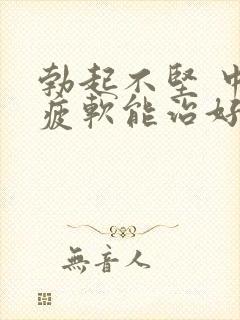 勃起不堅 中
疲軟能治好
無音人